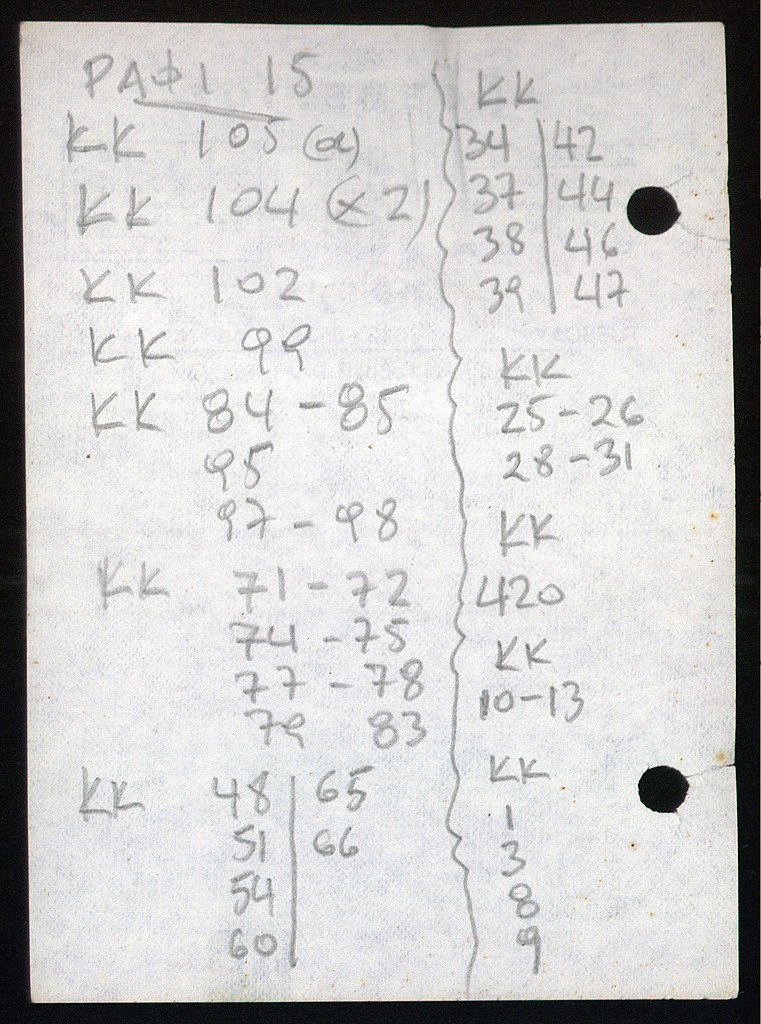 ΡΑΦΙ 15
ΚΚ 105 (α)
ΚΚ 104 (x2)
ΚΚ 102
ΚΚ 99
ΚΚ 84 - 85
95
97 - 98
ΚΚ 71 - 72
74 - 75
77 - 78
79 83
ΚΚ 48 | 65
51 | 66
54
60
ΚΚ
34 | 42
37 | 44
38 | 46
39 | 47
ΚΚ
25 - 26
28 - 31
ΚΚ
420
ΚΚ
10 - 13
ΚΚ
1
3
8
9